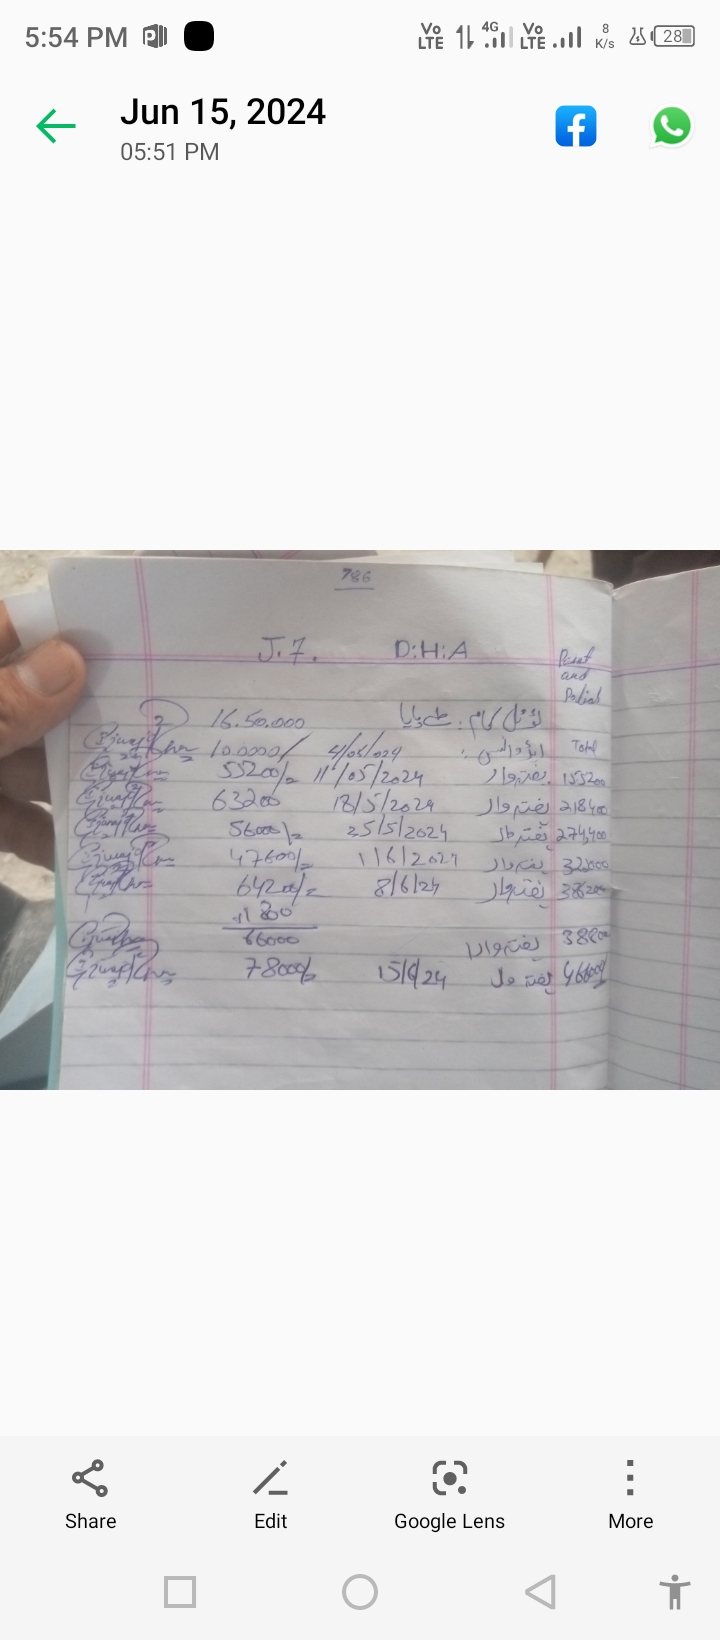 5:54 PM
Vo LTE 4G Vo LTE 8 K/s 28
Jun 15, 2024
05:51 PM
786
J.7. D:H:A
Paint and Polish
16.50.000 ٹوٹل کام:
10.0000/ 4/05/024 Total
55200/= 11/05/2024 ہفتہ وار 155200
63200 18/5/2024 ہفتہ وار 218400
56000/= 25/5/2024 ہفتہ وار 274,400
47600/= 1/6/2024 ہفتہ وار
64200/= 8/6/24 ہفتہ وار
1800
66000 ہفتہ وار
78000/= 15/6/24 ہفتہ وار 466000
Share Edit Google Lens More